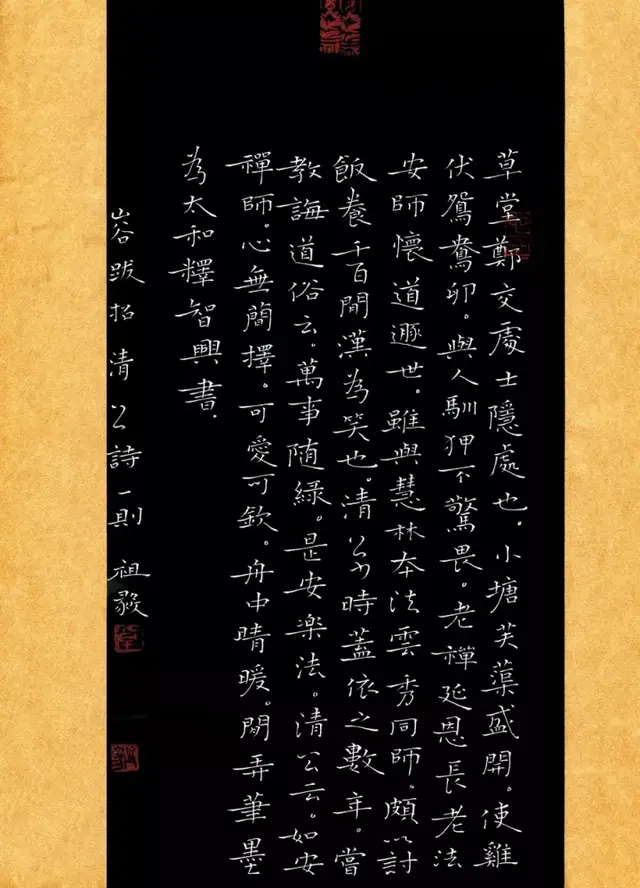 草堂鄭交處士隱處也。小塘芙蕖盛開。使雞
伏鴛鴦卵。與人馴狎不驚畏。老禪延恩長老法
安師懷道遯世。雖與慧林本法雲秀同師。頗以討
飯養千百閒漢為笑也。清公少時蓋依之數年。嘗
教誨道俗云。萬事随緣。是安楽法。清公云。如安
禪師。心無簡擇。可愛可欽。舟中晴暖。閒弄筆墨
為太和釋智興書。
山谷跋招清公詩一則 祖毅